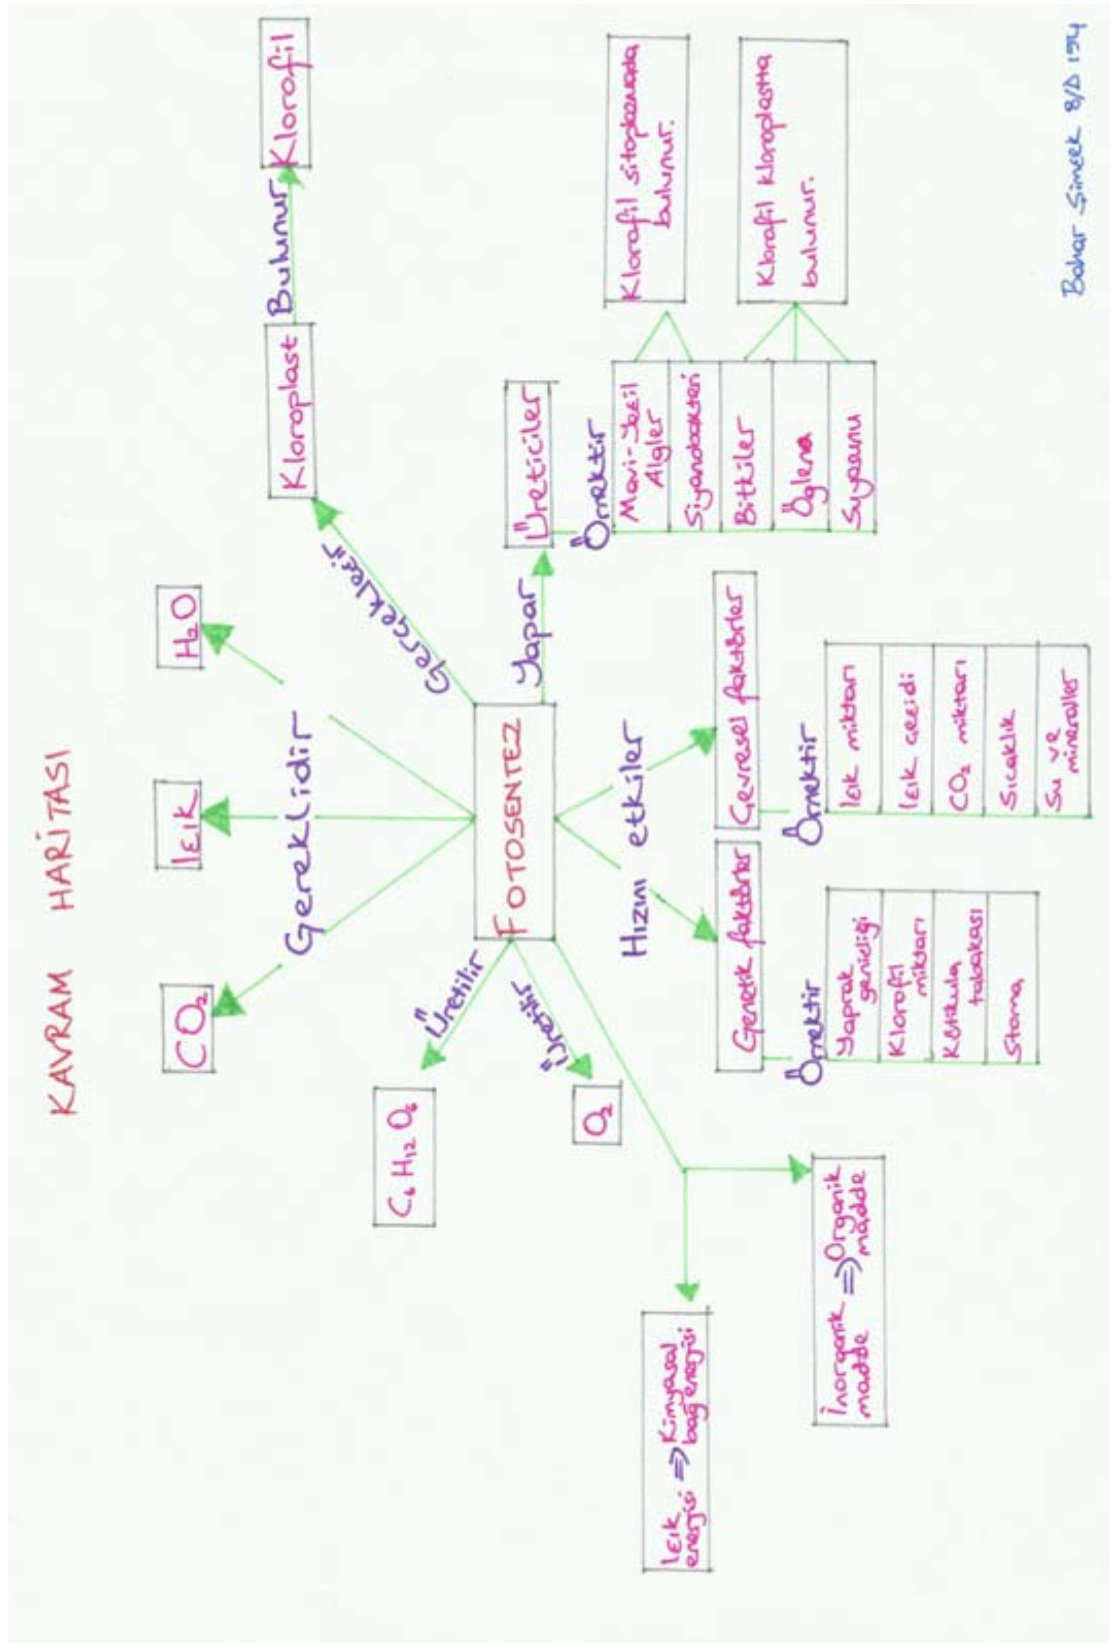 KAVRAM HARİTASI
CO₂
Işık
H₂O
Gereklidir
Kloroplast
Bulunur
Klorofil
Gerçekleşir
FOTOSENTEZ
Üretilir
C₆H₁₂O₆
Üretilir
O₂
Yapar
Üreticiler
Örnektir
Mavi-Yeşil
Algler
Siyanobakteri
Bitkiler
Öglena
Suyosunu
Klorofil sitoplazmada
bulunur.
Klorofil kloroplastta
bulunur.
Hızını etkiler
Genetik faktörler
Örnektir
Yaprak
genişliği
Klorofil
miktarı
Kütikula
tabakası
Stoma
Çevresel faktörler
Örnektir
Işık miktarı
Işık çeşidi
CO₂ miktarı
Sıcaklık
Su ve
mineraller
Işık
enerjisi ⇒ Kimyasal
bağ enerjisi
İnorganik
madde ⇒ Organik
madde
Bahar Şimşek 8/D 154